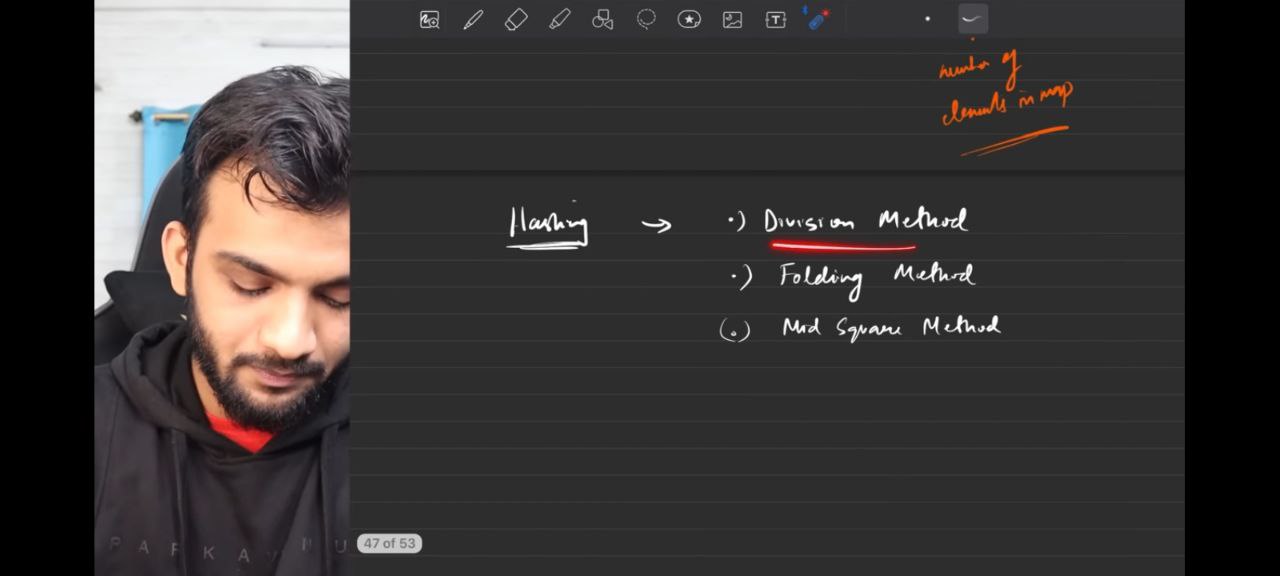 number of
elements in map
Hashing → •) Division Method
•) Folding Method
(•) Mid Square Method
47 of 53